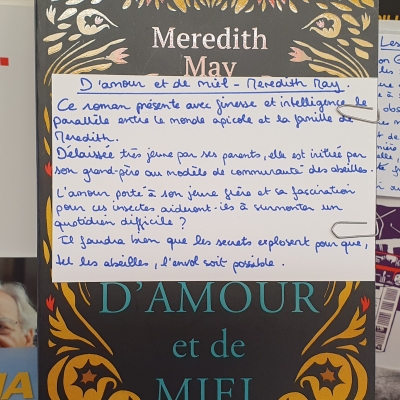 Meredith
May
D'amour et de miel - Meredith May.
Ce roman présente avec finesse et intelligence le
parallèle entre le monde apicole et la famille de
Meredith.
Délaissée très jeune par ses parents, elle est initiée par
son grand-père au modèle de communauté des abeilles.
L'amour porté à son jeune frère et sa fascination
pour ces insectes aideront-ils à surmonter un
quotidien difficile ?
Il faudra bien que les secrets explosent pour que,
tel les abeilles, l'envol soit possible.
D'AMOUR
et de
MIEL
Les